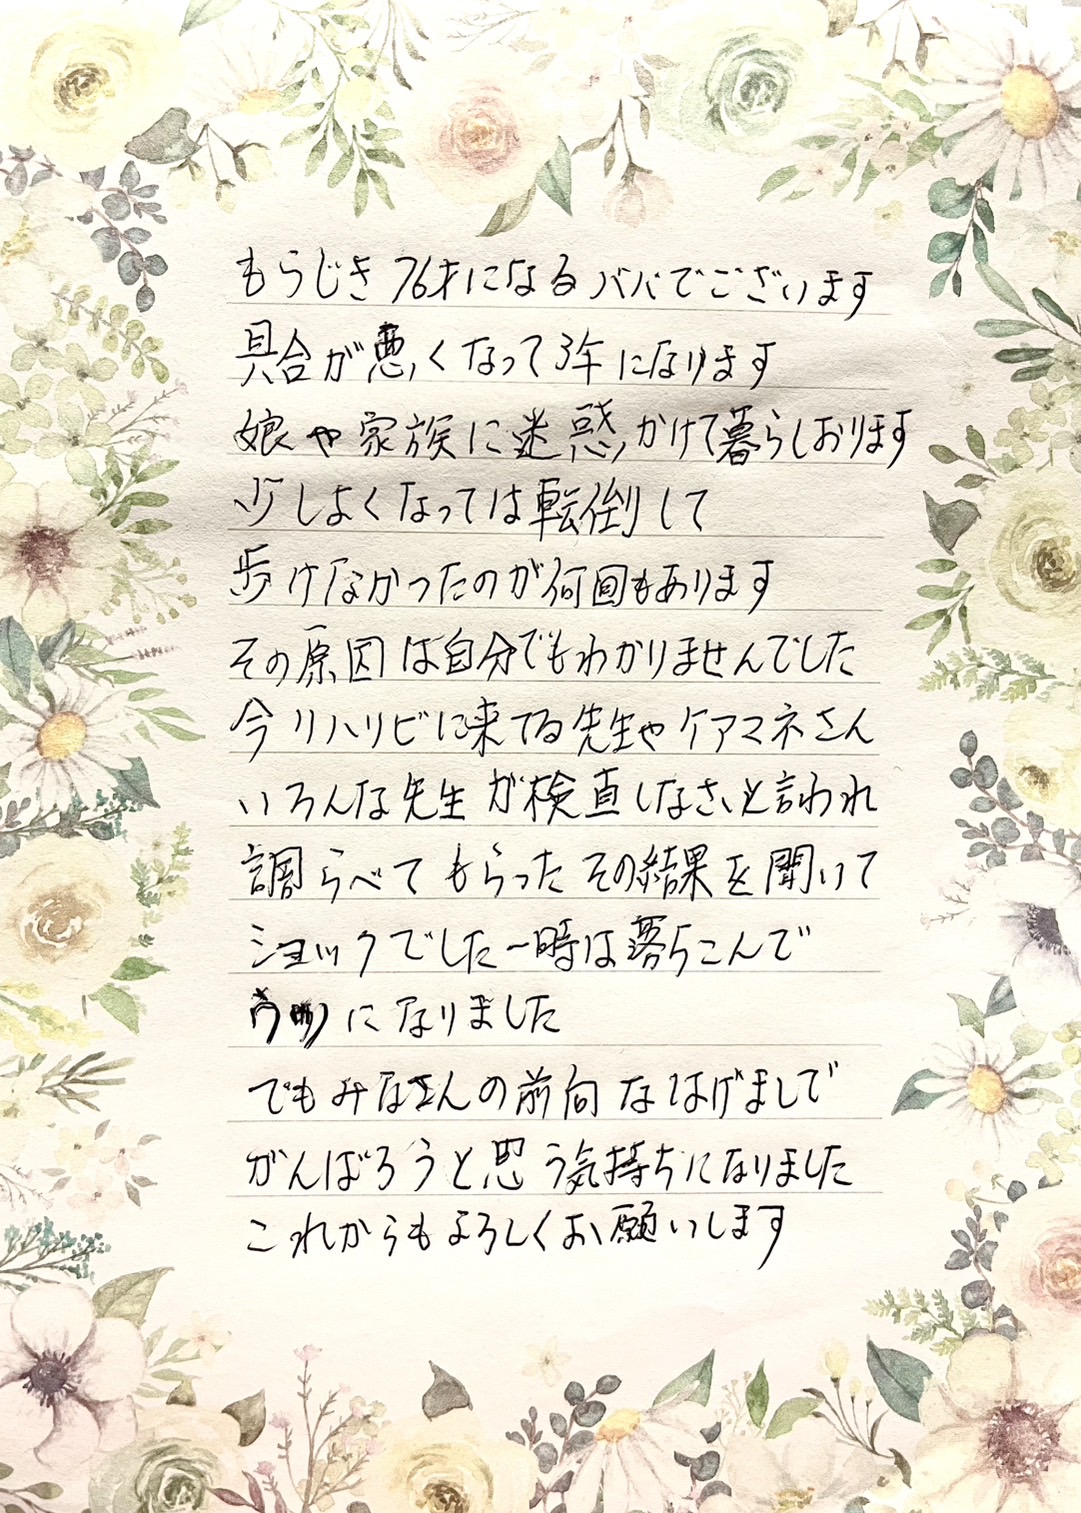 もうじき76才になるババでございます
具合が悪くなって3年になります
娘や家族に迷惑かけて暮らしおります
少しよくなっては転倒して
歩けなかったのが何回もあります
その原因は自分でもわかりませんでした
今リハリビに来てる先生やケアマネさん
いろんな先生が検査しなさいと言われ
調らべてもらったその結果を聞いて
ショックでした一時は落ちこんで
になりました
でもみなさんの前向なはげましで
がんばろうと思う気持ちになりました
これからもよろしくお願いします